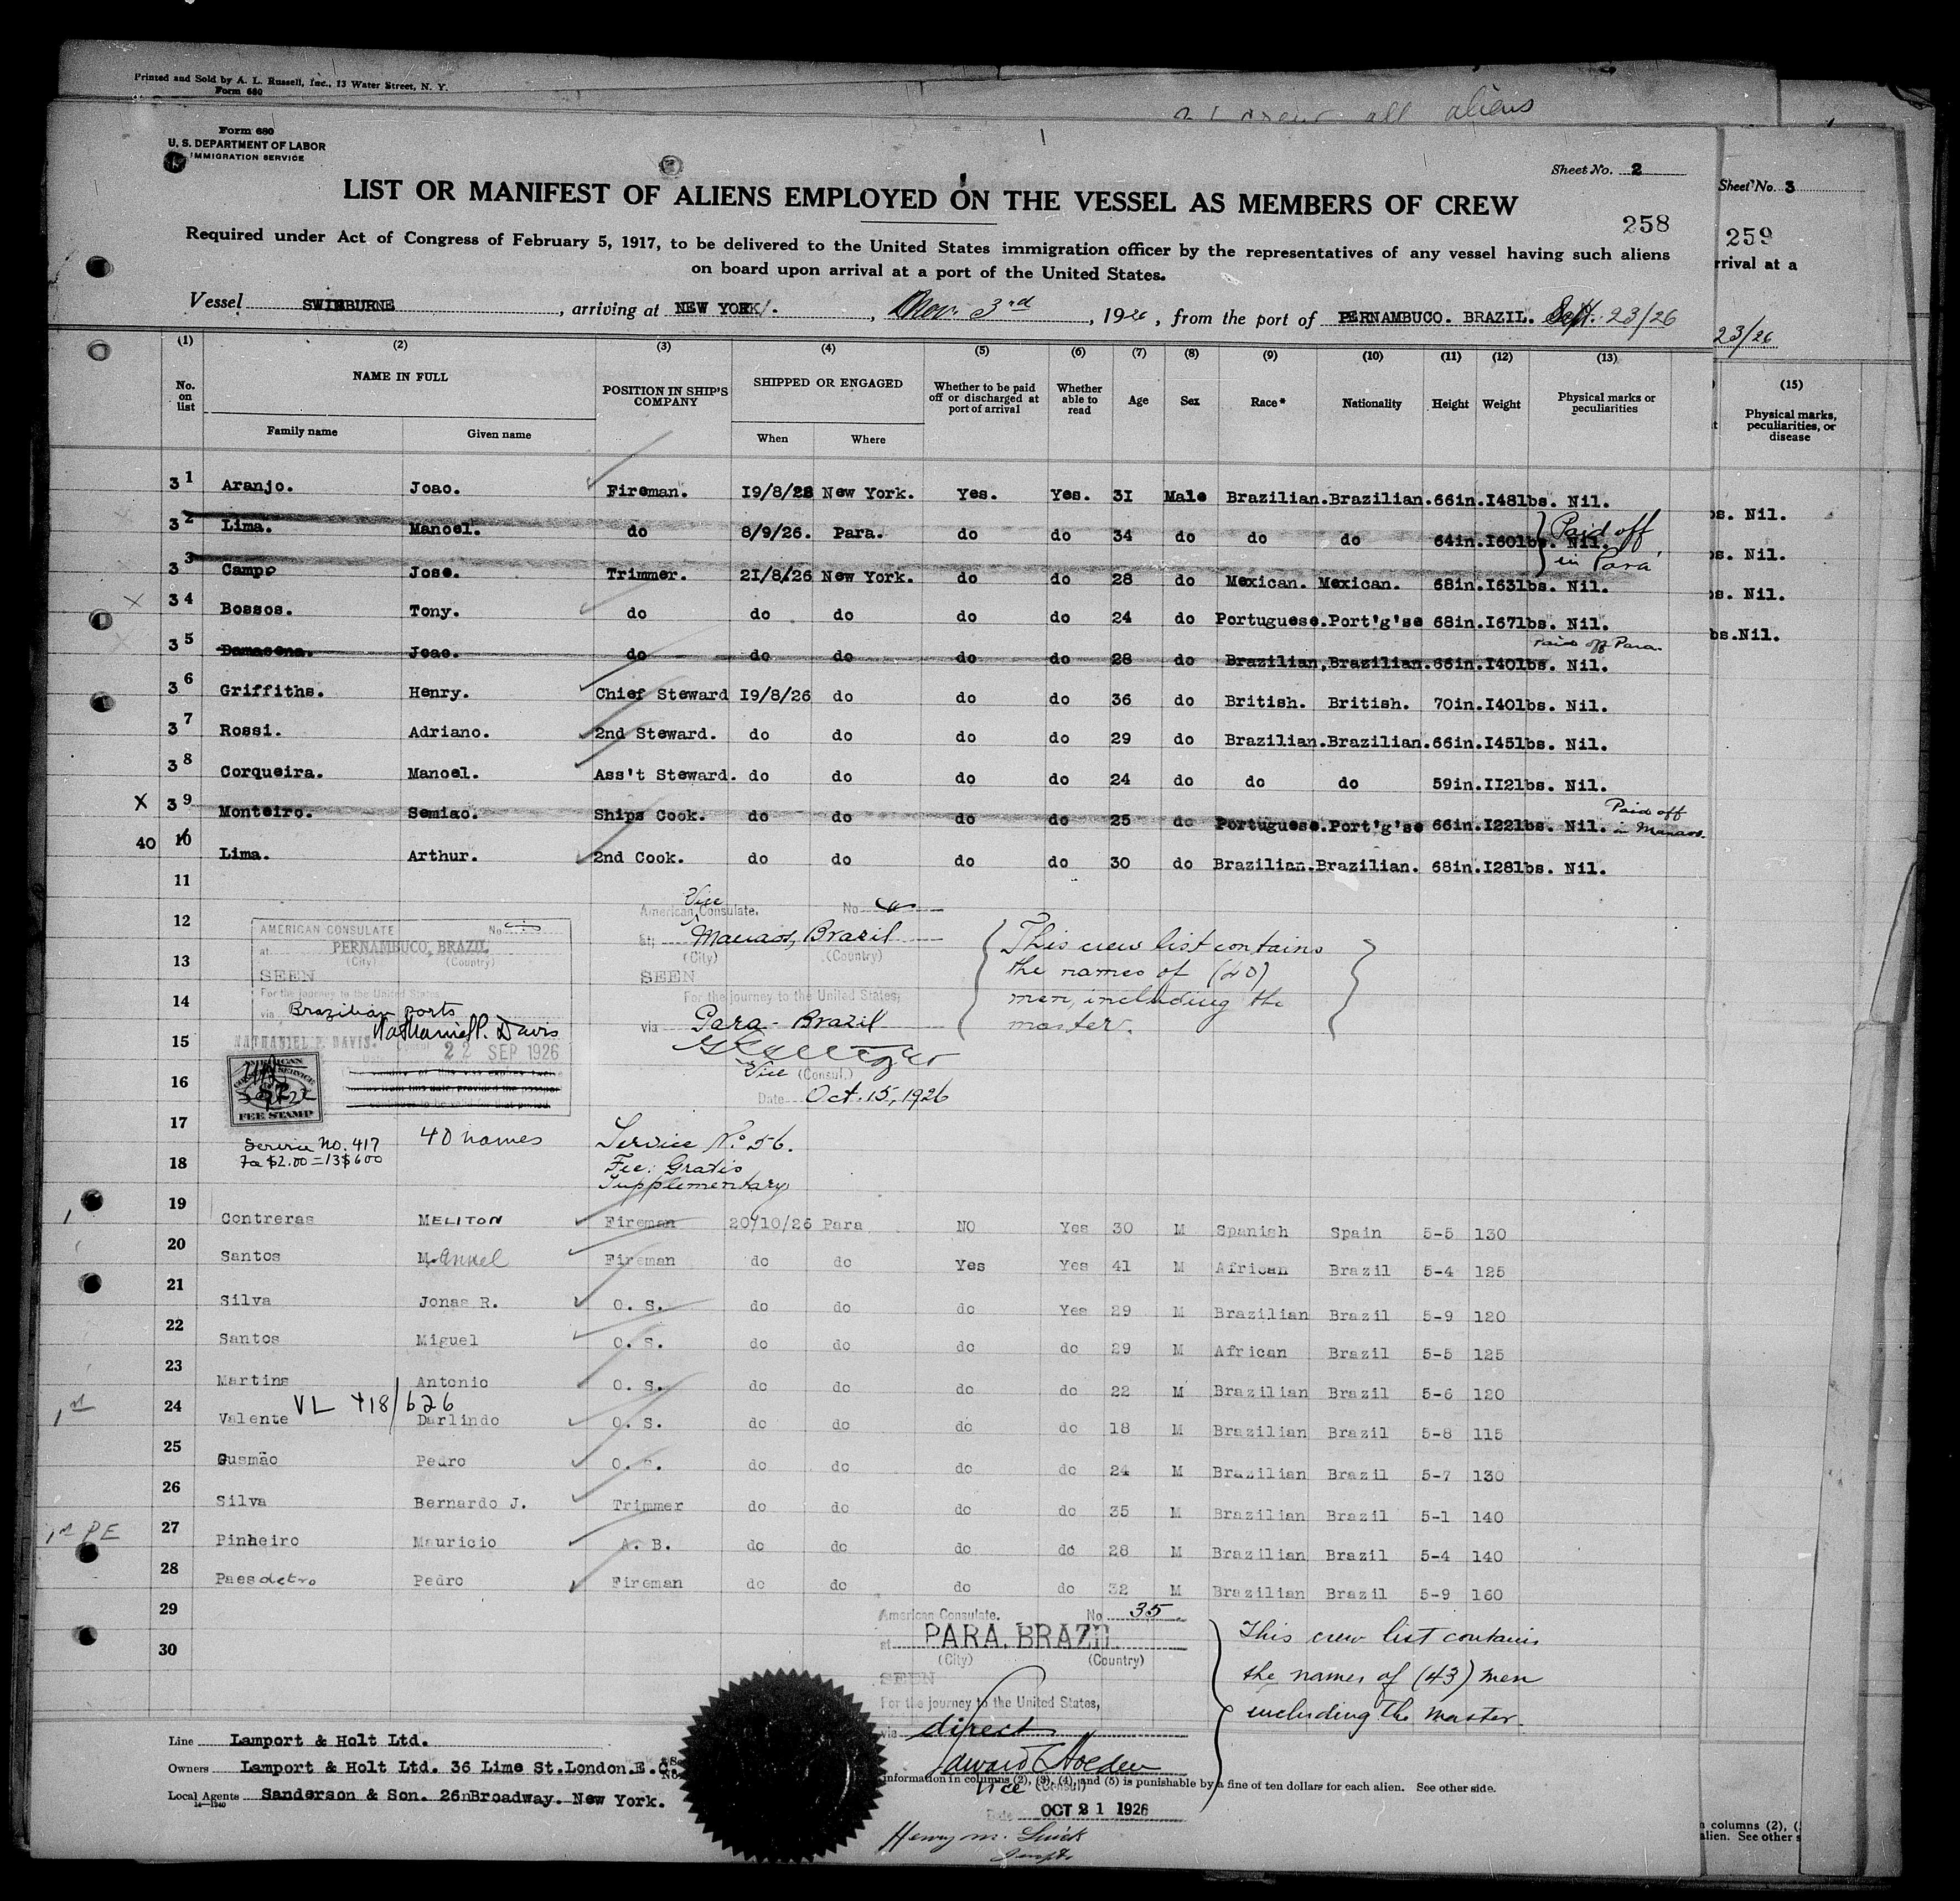 Printed and Sold by A. L. Russell, Inc., 13 Water Street, N. Y.
Form 680
crew all aliens
Form 680
U. S. DEPARTMENT OF LABOR
IMMIGRATION SERVICE
Sheet No. 2
Sheet No. 3
LIST OR MANIFEST OF ALIENS EMPLOYED ON THE VESSEL AS MEMBERS OF CREW
258
259
Required under Act of Congress of February 5, 1917, to be delivered to the United States immigration officer by the representatives of any vessel having such aliens
on board upon arrival at a port of the United States.
rrival at a
Vessel SWINBURNE, arriving at NEW YORK. , Nov. 3rd, 1926, from the port of PERNAMBUCO. BRAZIL. Sept. 23/26
23/26
(1) (2) (3) (4) (5) (6) (7) (8) (9) (10) (11) (12) (13) (15)
No. on list NAME IN FULL POSITION IN SHIP'S COMPANY SHIPPED OR ENGAGED Whether to be paid off or discharged at port of arrival Whether able to read Age Sex Race* Nationality Height Weight Physical marks or peculiarities
Physical marks, peculiarities, or disease
Family name Given name When Where
31 Aranjo. Joao. Fireman. 19/8/28 New York. Yes. Yes. 31 Male Brazilian. Brazilian. 66in. 148lbs. Nil.
32 Lima. Manoel. do 8/9/26. Para. do do 34 do do do 64in. 160lbs. Nil. Paid off
bs. Nil.
33 Campo Jose. Trimmer. 21/8/26 New York. do do 28 do Mexican. Mexican. 68in. 163lbs. Nil. in Para
bs. Nil.
X 34 Bossos. Tony. do do do do do 24 do Portuguese. Port'g'se 68in. 167lbs. Nil.
bs. Nil.
35 Damasena. Joao. do do do do do 28 do Brazilian, Brazilian. 66in. 140lbs. Nil. Paid off Para.
bs.Nil.
36 Griffiths. Henry. Chief Steward 19/8/26 do do do 36 do British. British. 70in. 140lbs. Nil.
37 Rossi. Adriano. 2nd Steward. do do do do 29 do Brazilian. Brazilian. 66in. 145lbs. Nil.
38 Corqueira. Manoel. Ass't Steward. do do do do 24 do do do 59in. 112lbs. Nil.
X 39 Monteiro. Semiao. Ships Cook. do do do do 25 do Portuguese. Port'g'se 66in. 122lbs. Nil. Paid off in Manaos.
40 10 Lima. Arthur. 2nd Cook. do do do do 30 do Brazilian. Brazilian. 68in. 128lbs. Nil.
11
12
13
14
15
16
17
18
AMERICAN CONSULATE No
at PERNAMBUCO, BRAZIL
(City) (Country)
SEEN
For the journey to the United States
via Brazilian ports
Nathaniel P. Davis
NATHANIEL P. DAVIS.
Date 22 SEP 1926
AMERICAN
CONSULAR SERVICE
$2
FEE STAMP
Service No. 417
Fee $2.00 = 13$600
40 names
American Vice Consulate. No
at Manaos, Brazil
(City) (Country)
SEEN
For the journey to the United States,
via Para - Brazil
Vice (Consul.)
Date Oct. 15, 1926
Service No. 56.
Fee: Gratis
Supplementary
This crew list contains
the names of (40)
men, including the
master.
19 Contreras MELITON Fireman 20/10/26 Para NO Yes 30 M Spanish Spain 5-5 130
20 Santos Manuel Fireman do do Yes Yes 41 M African Brazil 5-4 125
21 Silva Jonas R. O. S. do do do Yes 29 M Brazilian Brazil 5-9 120
22 Santos Miguel O. S. do do do do 29 M African Brazil 5-5 125
23 Martins Antonio O. S. do do do do 22 M Brazilian Brazil 5-6 120
VL 418/626
1st 24 Valente Darlindo O. S. do do do do 18 M Brazilian Brazil 5-8 115
25 Gusmão Pedro O. S. do do do do 24 M Brazilian Brazil 5-7 130
26 Silva Bernardo J. Trimmer do do do do 35 M Brazilian Brazil 5-1 140
1st PE 27 Pinheiro Mauricio A. B. do do do do 28 M Brazilian Brazil 5-4 140
28 Paes Pedro Fireman do do do do 32 M Brazilian Brazil 5-9 160
29
30
American Consulate. No 35
at PARA, BRAZIL
(City) (Country)
SEEN
For the journey to the United States,
via direct
Edward Holden
Vice (Consul)
Date OCT 21 1926
This crew list contains
the names of (43) men
including the master.
Line Lamport & Holt Ltd.
Owners Lamport & Holt Ltd. 36 Lime St. London. E.C.
Local Agents Sanderson & Son. 26 Broadway. New York.
14-1240
information in columns (2), (3), (4), and (5) is punishable by a fine of ten dollars for each alien. See other side.
n columns (2), (
alien. See other s
Henry M.